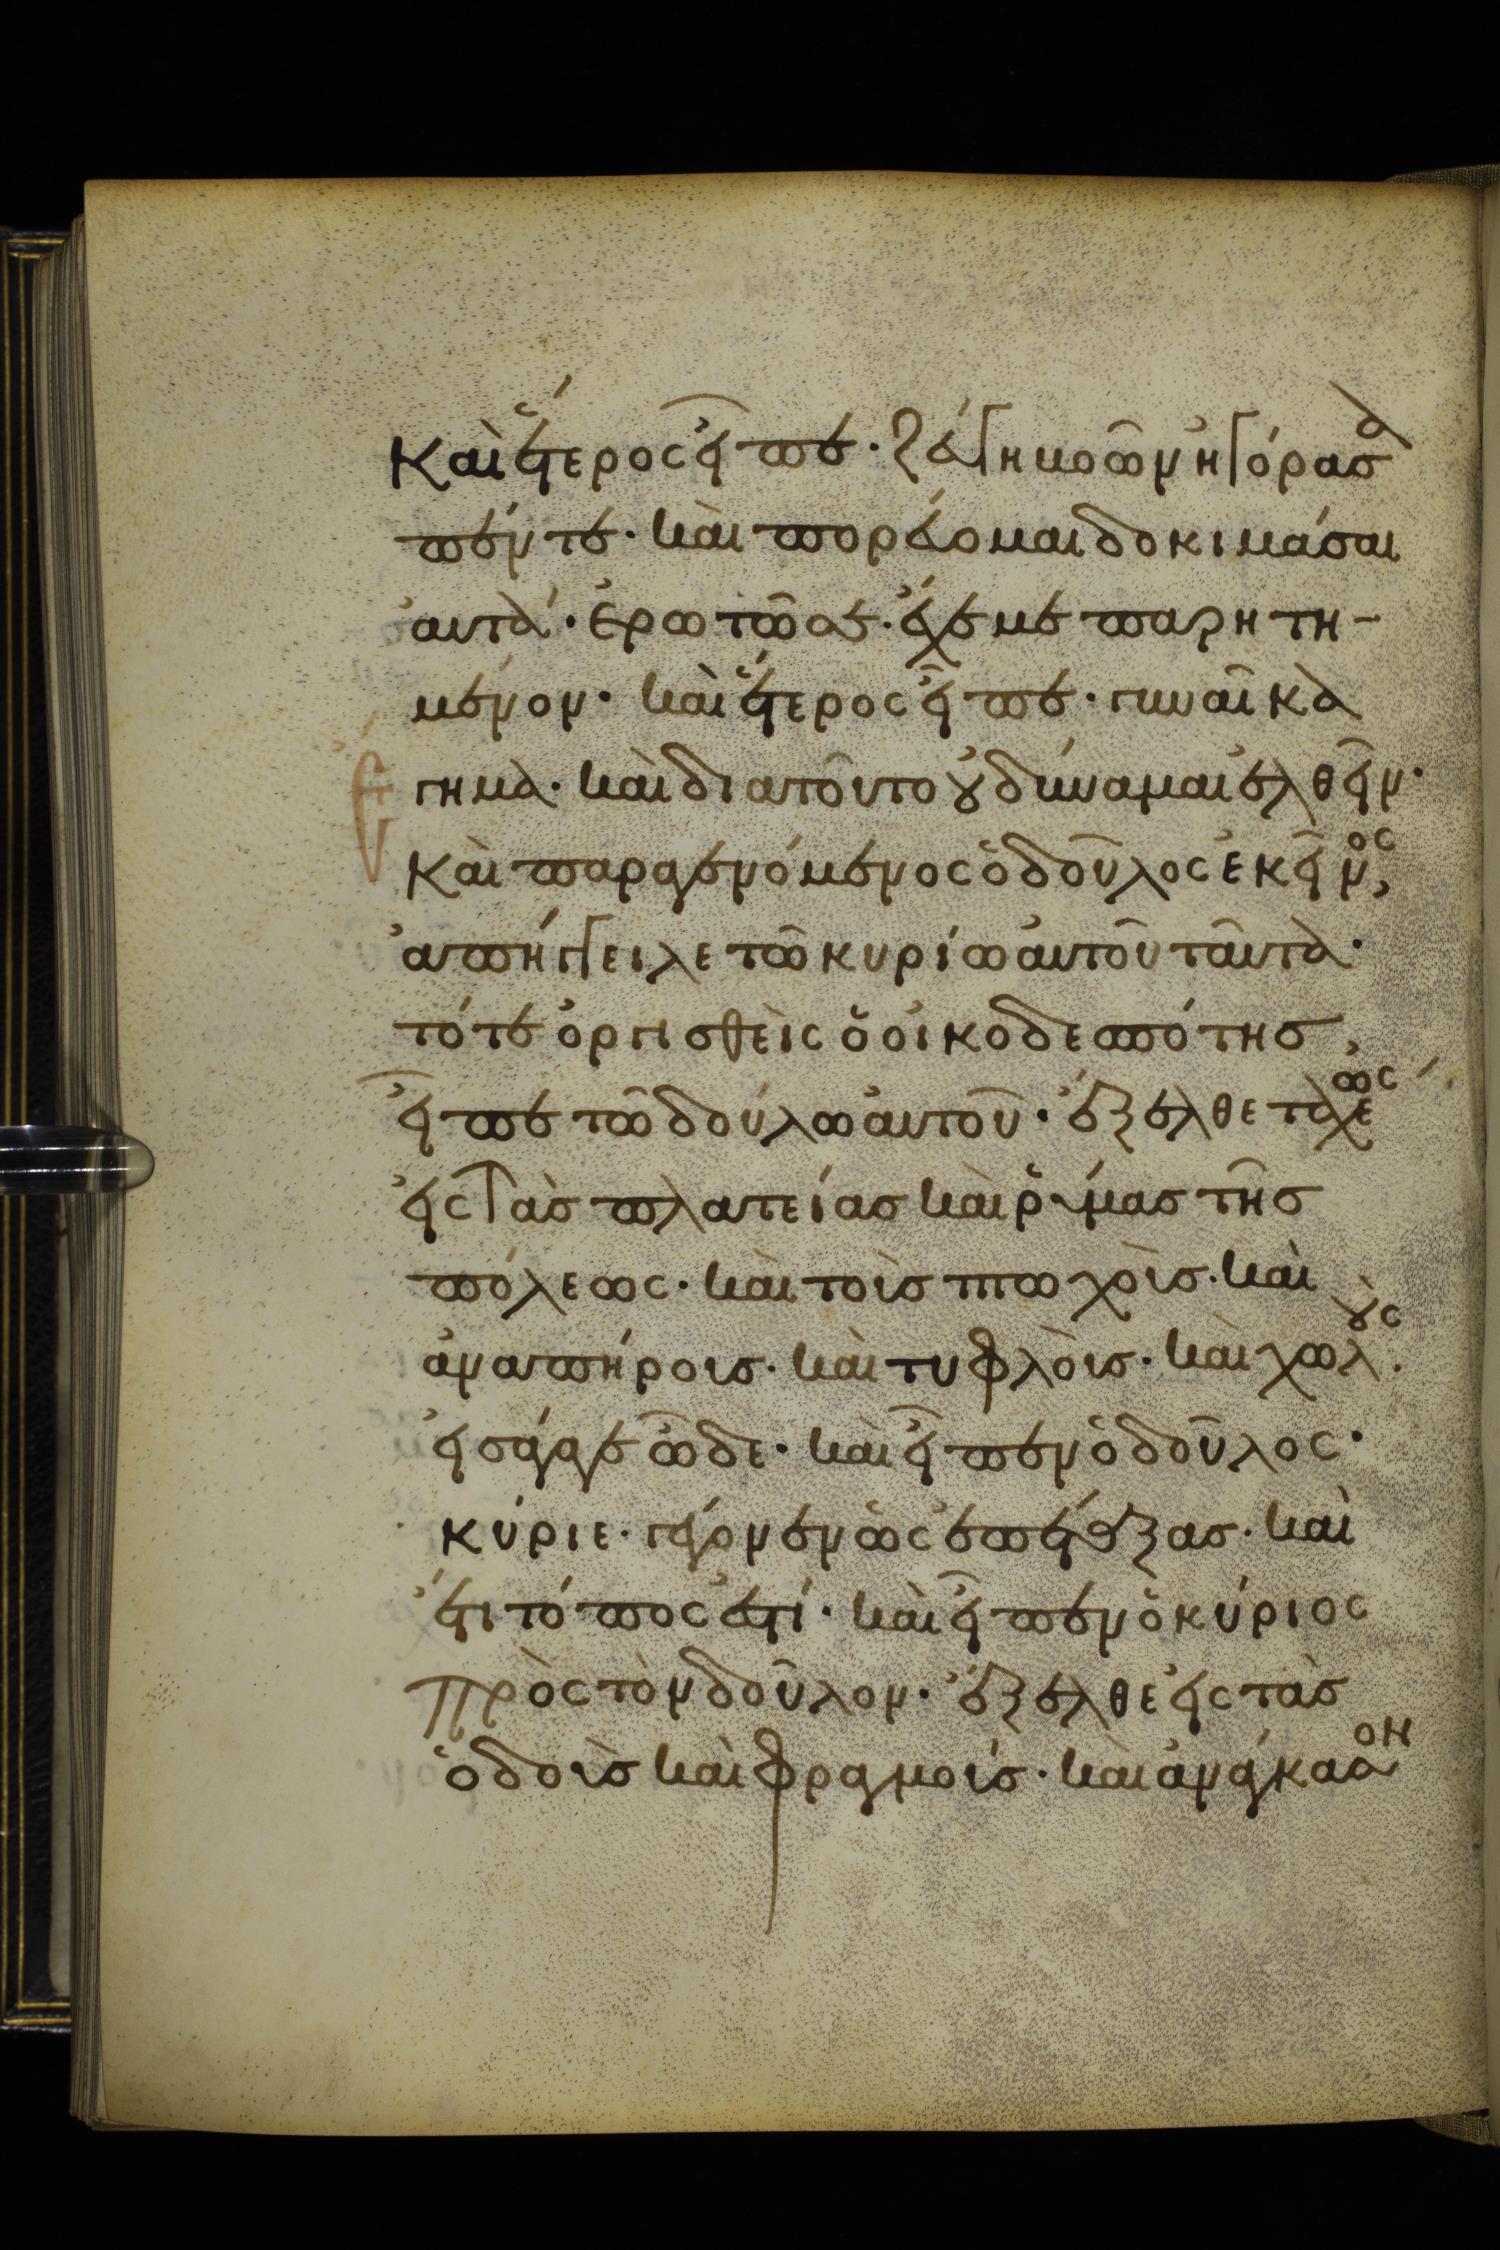 Καὶ ἕτερος εἶπε· ζεύγη βοῶν ἠγόρασα
πέντε· καὶ πορεύομαι δοκιμάσαι
αὐτά· ἐρωτῶ σε· ἔχε με παρητη-
μένον· καὶ ἕτερος εἶπε· γυναῖκα
γημα· καὶ διατοῦτο οὐ δύναμαι ἐλθεῖν·
Καὶ παραγενόμενος ὁ δοῦλος ἐκεῖνος,
ἀπήγγειλε τῶ κυρίω αὐτοῦ ταῦτα·
τότε ὀργισθεὶς ὁ οἰκοδεσπότης,
εἶπε τῶ δούλω αὐτοῦ· ἔξελθε ταχέως
εἰς τὰς πλατείας καὶ ῥύμας τῆς
πόλεως· καὶ τοὺς πτωχοὺς· καὶ
ἀναπήρους· καὶ τυφλοὺς· καὶ χωλοὺς.
εἰσάγαγε ὧδε· καὶ εἶπεν ὁ δοῦλος·
κύριε· γέγονεν ὡς ἐπέταξας· καὶ
ἔτι τόπος ἐστί· καὶ εἶπεν ὁ κύριος
πρὸς τὸν δοῦλον· ἔξελθε εἰς τὰς
ὁδοὺς καὶ φραγμούς· καὶ ἀνάγκασον